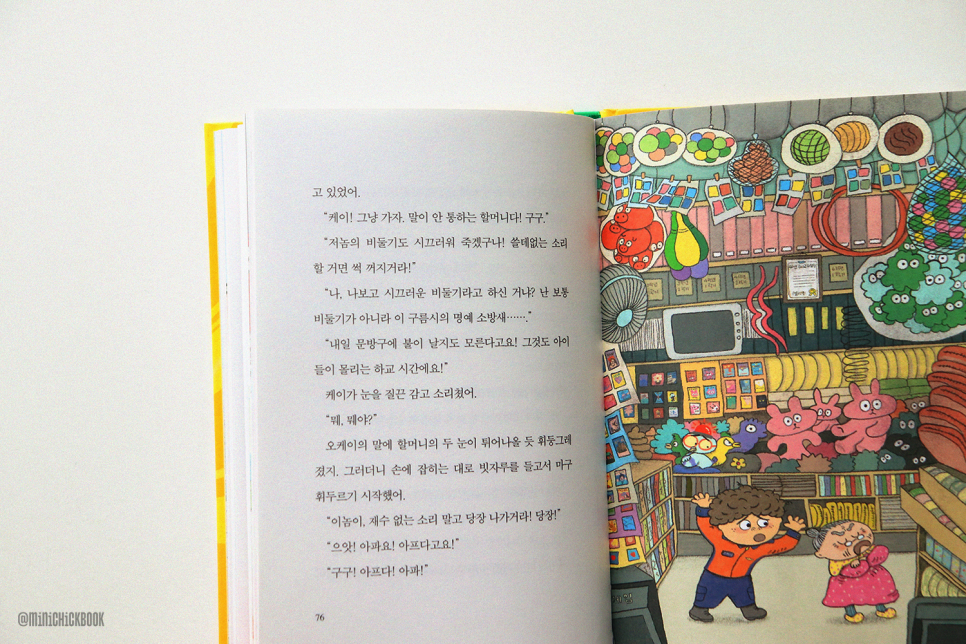 고 있었어.
“케이! 그냥 가자. 말이 안 통하는 할머니다! 구구.”
“저놈의 비둘기도 시끄러워 죽겠구나! 쓸데없는 소리
할 거면 썩 꺼지거라!”
“나, 나보고 시끄러운 비둘기라고 하신 거냐? 난 보통
비둘기가 아니라 이 구름시의 명예 소방새…….”
“내일 문방구에 불이 날지도 모른다고요! 그것도 아이
들이 몰리는 하교 시간에요!”
케이가 눈을 질끈 감고 소리쳤어.
“뭬, 뭬야?”
오케이의 말에 할머니의 두 눈이 튀어나올 듯 휘둥그레
졌지. 그러더니 손에 잡히는 대로 빗자루를 들고서 마구
휘두르기 시작했어.
“이놈이, 재수 없는 소리 말고 당장 나가거라! 당장!”
“으앗! 아파요! 아프다고요!”
“구구! 아프다! 아파!”
76
@MINICHICKBOOK